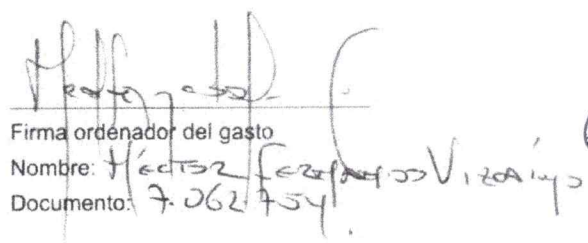 Firma ordenador del gasto
Nombre: Héctor Fernando Vizcaíno
Documento: 7.062.754